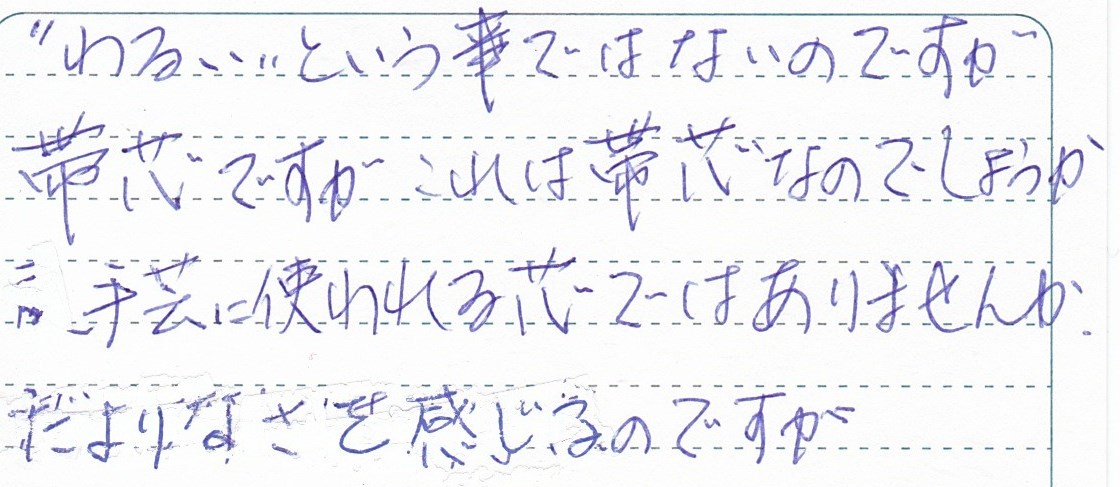 "わるい"という事ではないのですが
帯芯ですが これは帯芯なのでしょうか
手芸に使われる芯ではありませんか.
だよりなさを感じるのですが